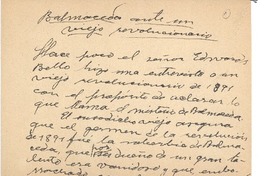 Balmaceda ante un
viejo revolucionario
Hace poco el señor Edwards
Bello hizo una entrevista a un
viejo revolucionario de 1891
con el propósito de aclarar lo
que llama el misterio de Balmaceda.
El susodicho viejo asegura
que el germen de la revolución
de 1891 fue la soberbia de Balma-
ceda, que por ser dueño de un gran ta-
lento era vanidoso y que